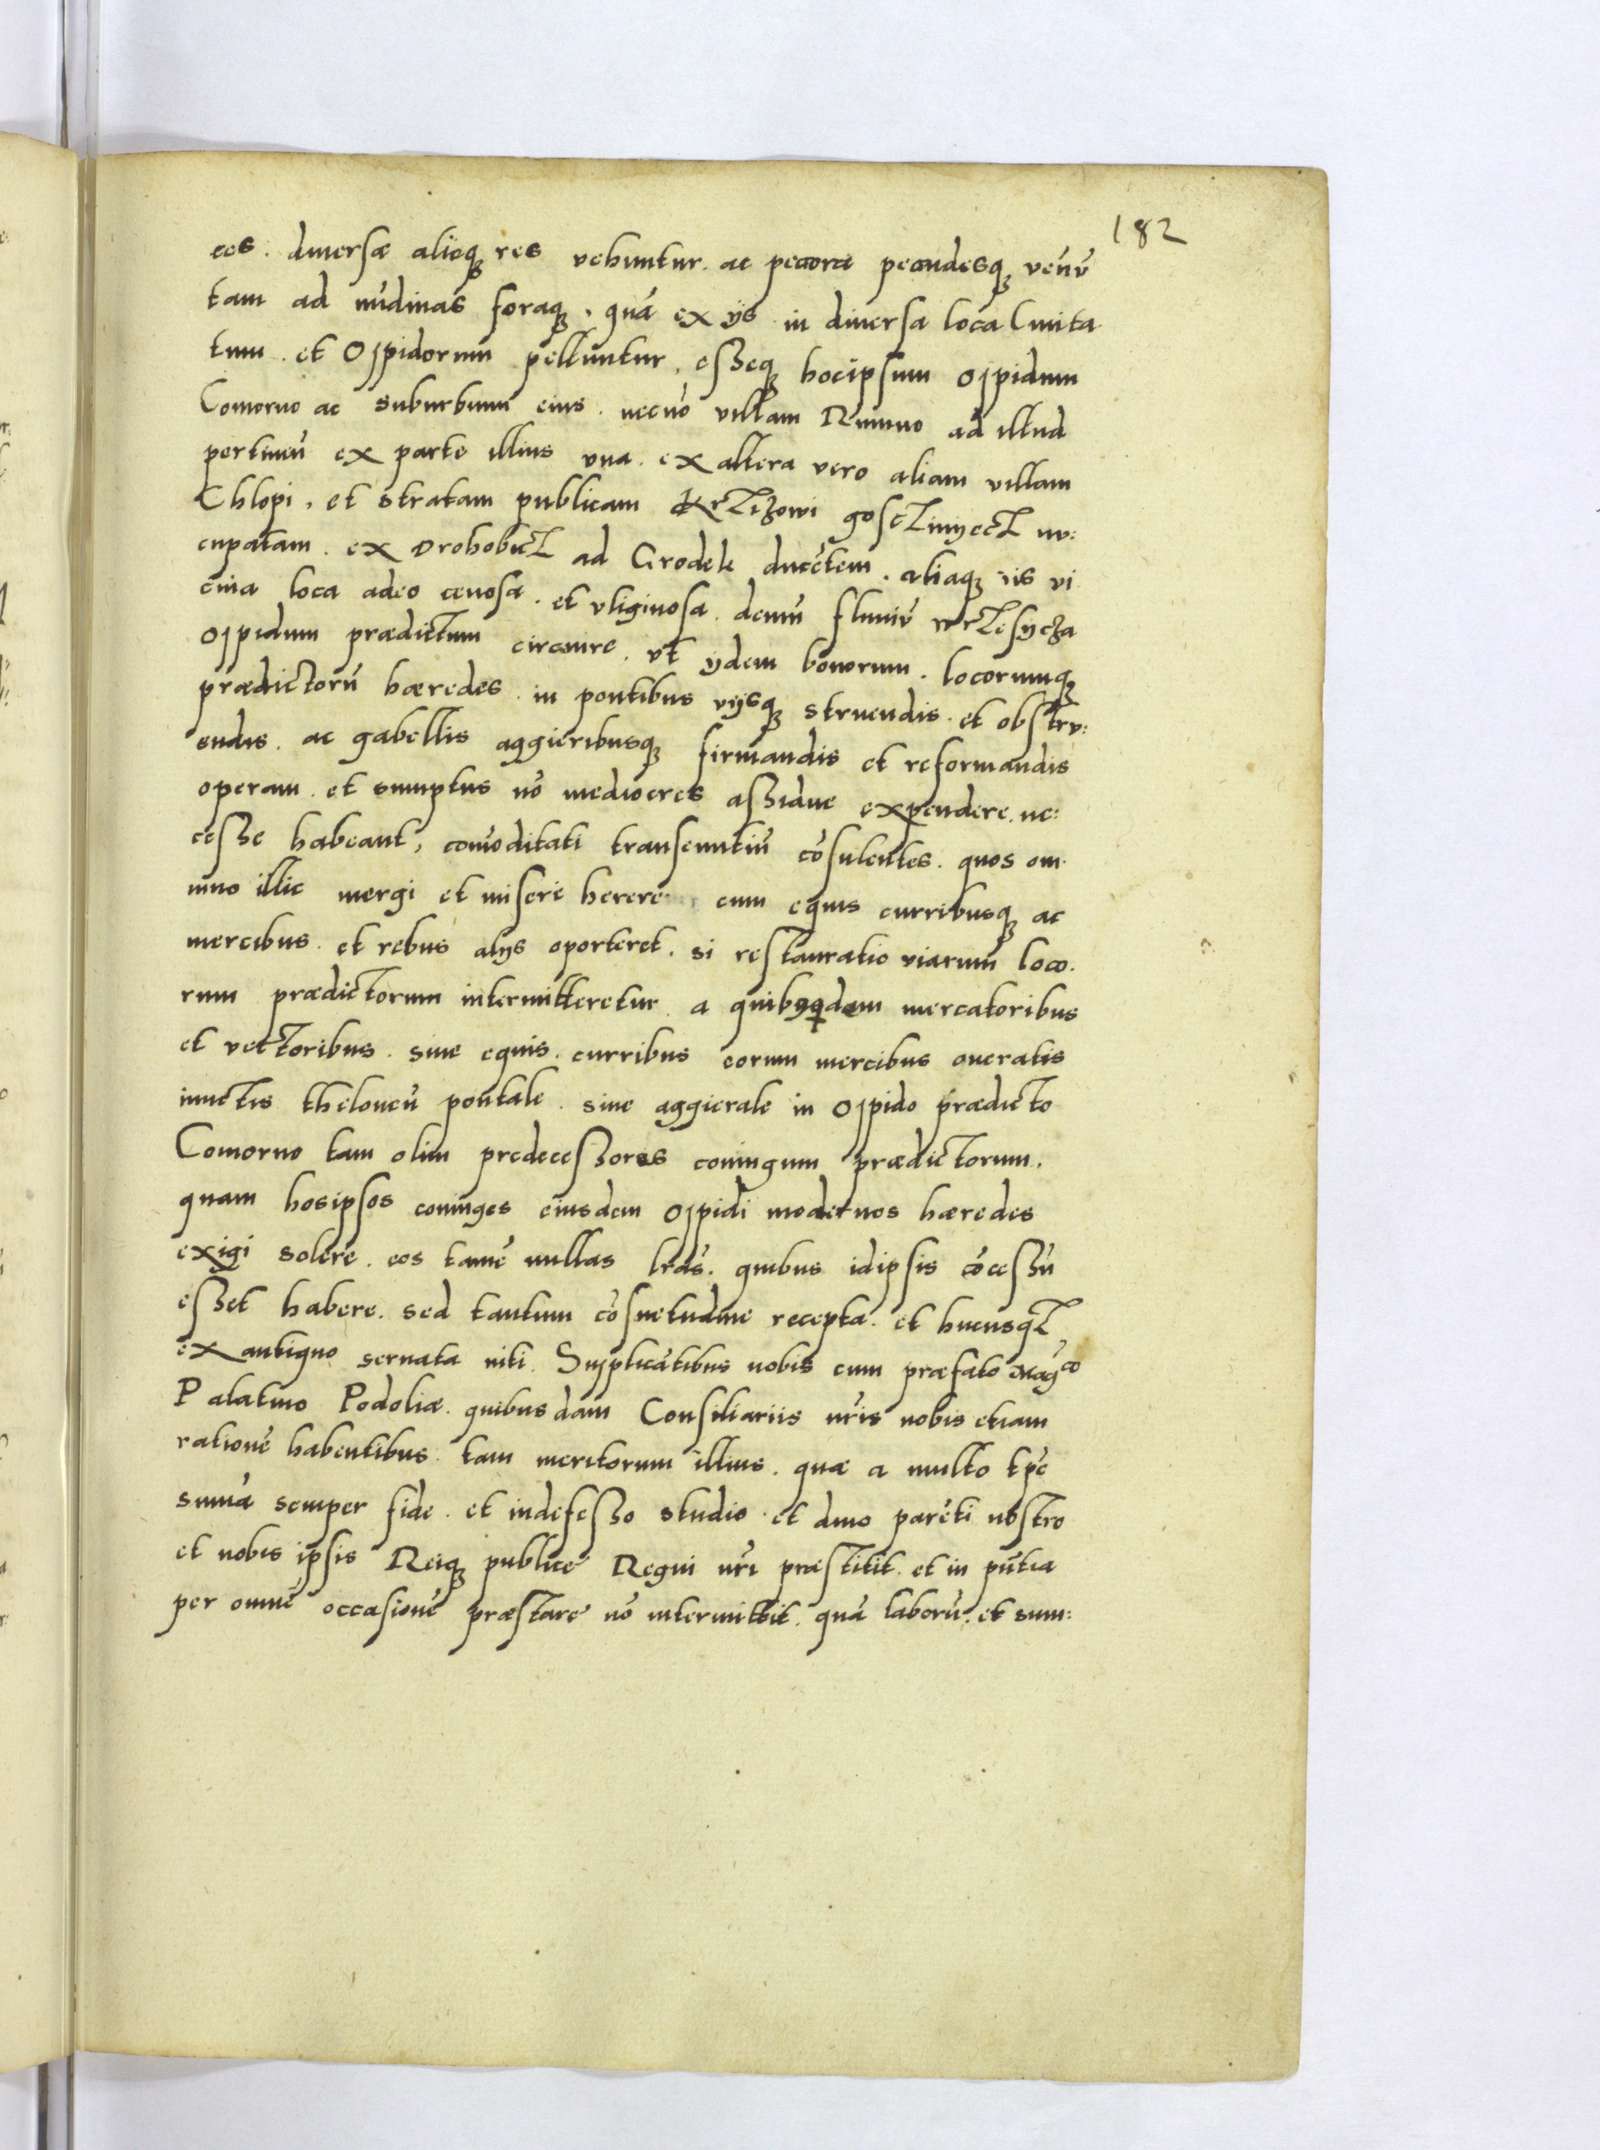 182
ces. diuersæ alieq₃ res vehuntur. ac pecora pecudesq₃ venũ
tam ad nũdinas foraq₃. quã ex ÿs in diuersa loca Ciuita
tum. et Oppidorum pelluntur, esseq₃ hocipsum oppidum
Comorno ac suburbium eius. necnõ villam Rumno ad illud
pertineñ ex parte illius vna. ex altera vero aliam villam
Chlopi, et stratam publicam Krzizowi gosczinyecz nu:
cupatam. ex Drohobicz ad Grodek ducẽtem. aliaq₃ iis vi
cina loca adeo cenosa. et vliginosa. demũ fluuiũ
Oppidum prædictum circuire. vt ÿdem bonorum. locorumq₃
prædictorũ hæredes. in pontibus vÿsq₃ struendis. et obstru:
endis. ac gabellis aggieribusq₃ firmandis et reformandis
operam. et sumptus nõ mediocres assidue expendere. ne:
cesse habeant, comõditati transeuntiũ cõsulentes. quos om
nino illic mergi et miseré herere cum equis curribusq₃ ac
mercibus. et rebus alÿs oporteret. si restauratio viarum loco.
rum prædictorum intermitteretur. a quibusdam mercatoribus
et vectoribus. siue equis. curribus eorum mercibus oneratis
iunctis theloneũ pontale. siue aggierale in oppido prædicto
Comorno tam olim predecessores coniugum prædictorum,
quam hosipsos coniuges eiusdem oppidi modernos hæredes
exigi solere. eos tamẽ nullas lrãs. quibus idipsis cõcessũ
esset habere. sed tantum cõsuetudine recepta. et hucusq₃
ex antiquo seruata niti. Supplicãtibus nobis cum præfato Magco
Palatino Podoliæ. quibusdam Consiliariis nris nobis etiam
rationẽ habentibus. tam meritorum illius. quæ a multo tpẽ
sumã semper fide. et indefesso studio. et diuo parẽti nostro
et nobis ipsis Reiq₃ publicé Regni nri præstitit. et in pñtia
per omnẽ occasionẽ præstare nõ intermittit. quã laborũ. et sum: